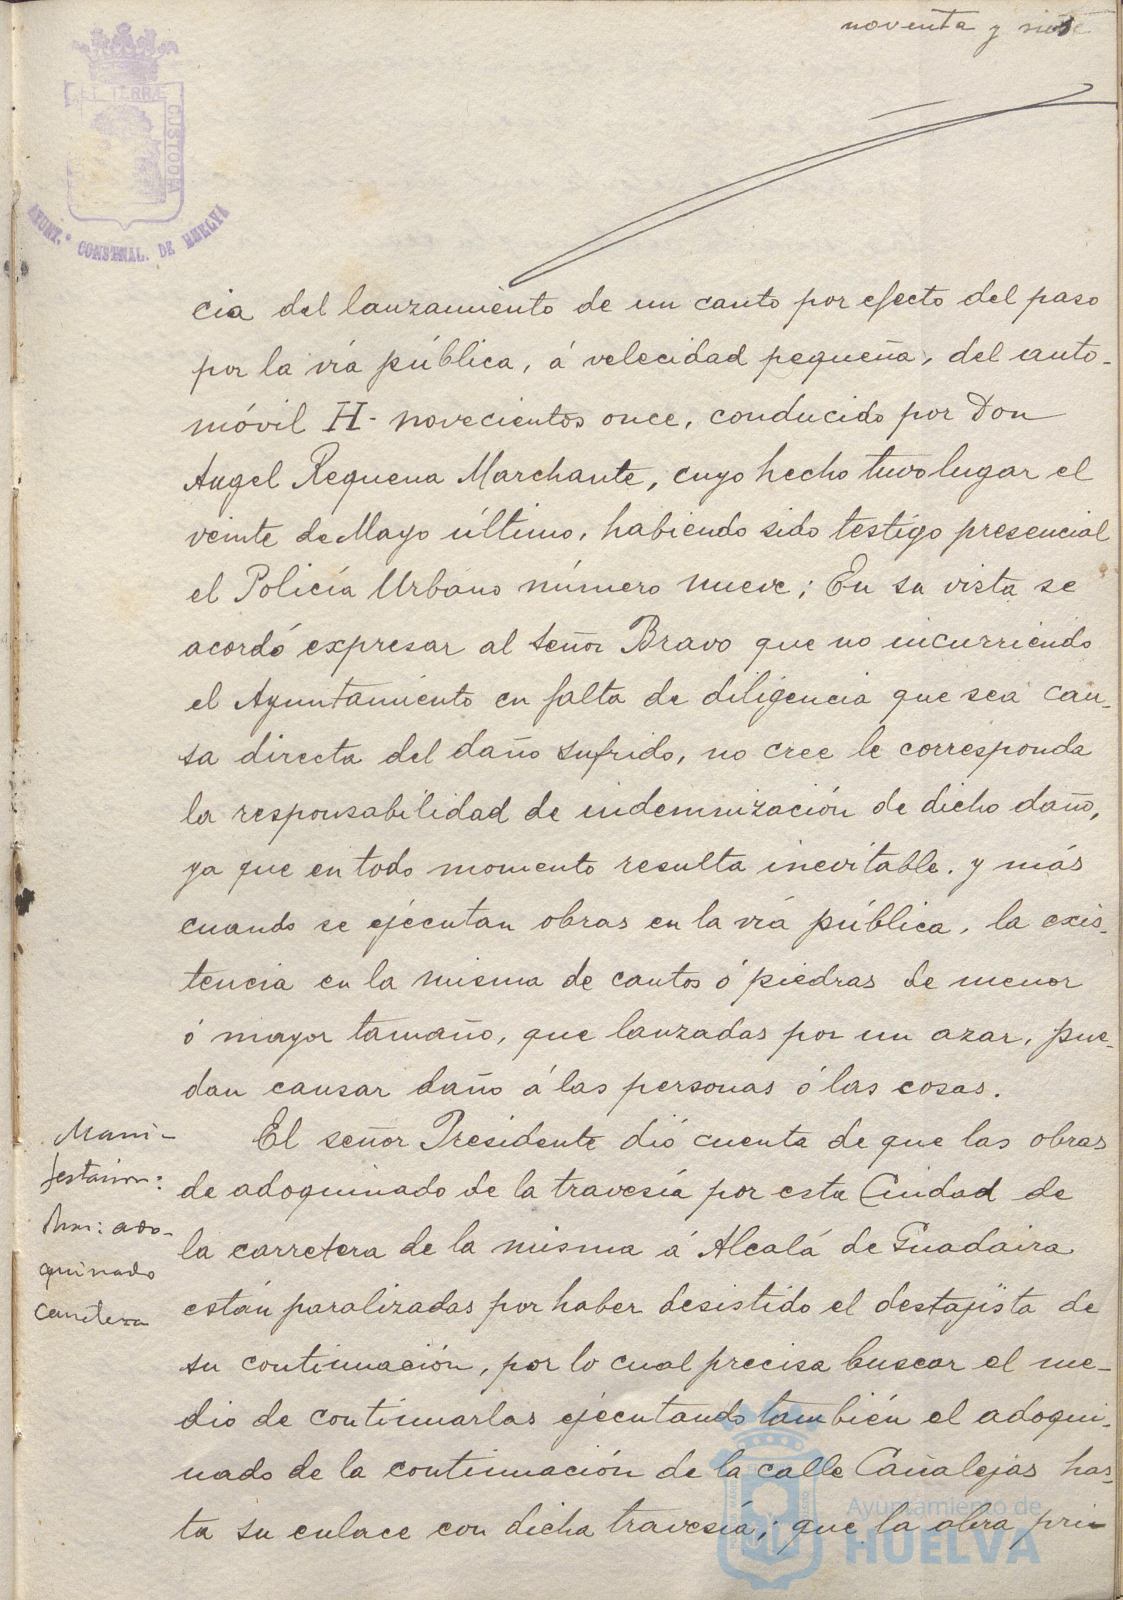 noventa y siete
ET TERRÆ
CUSTODIA
AYUNT.º CONSTNAL. DE HUELVA
cia del lanzamiento de un canto por efecto del paso
por la vía pública, á velecidad pequeña, del auto-
móvil H- novecientos once, conducido por Don
Angel Requena Marchante, cuyo hecho tuvo lugar el
veinte de Mayo último, habiendo sido testigo presencial
el Policía Urbano número nueve; En su vista se
acordó expresar al señor Bravo que no incurriendo
el Ayuntamiento en falta de diligencia que sea cau-
sa directa del daño sufrido, no cree le corresponda
la responsabilidad de indemnización de dicho daño,
ya que en todo momento resulta inevitable, y más
cuando se ejecutan obras en la vía pública, la exis-
tencia en la misma de cantos ó piedras de menor
ó mayor tamaño, que lanzadas por un azar, pue-
dan causar daño á las personas ó las cosas.
Mani-
festación:
ado-
quinado
carretera
El señor Presidente dió cuenta de que las obras
de adoquinado de la travesía por esta Ciudad de
la carretera de la misma á Alcalá de Guadaira
están paralizadas por haber desistido el destajista de
su continuación, por lo cual precisa buscar el me-
dio de continuarlas ejecutando también el adoqui-
nado de la continuación de la calle Canalejas has-
ta su enlace con dicha travesía; que la obra pri-
Ayuntamiento de
HUELVA